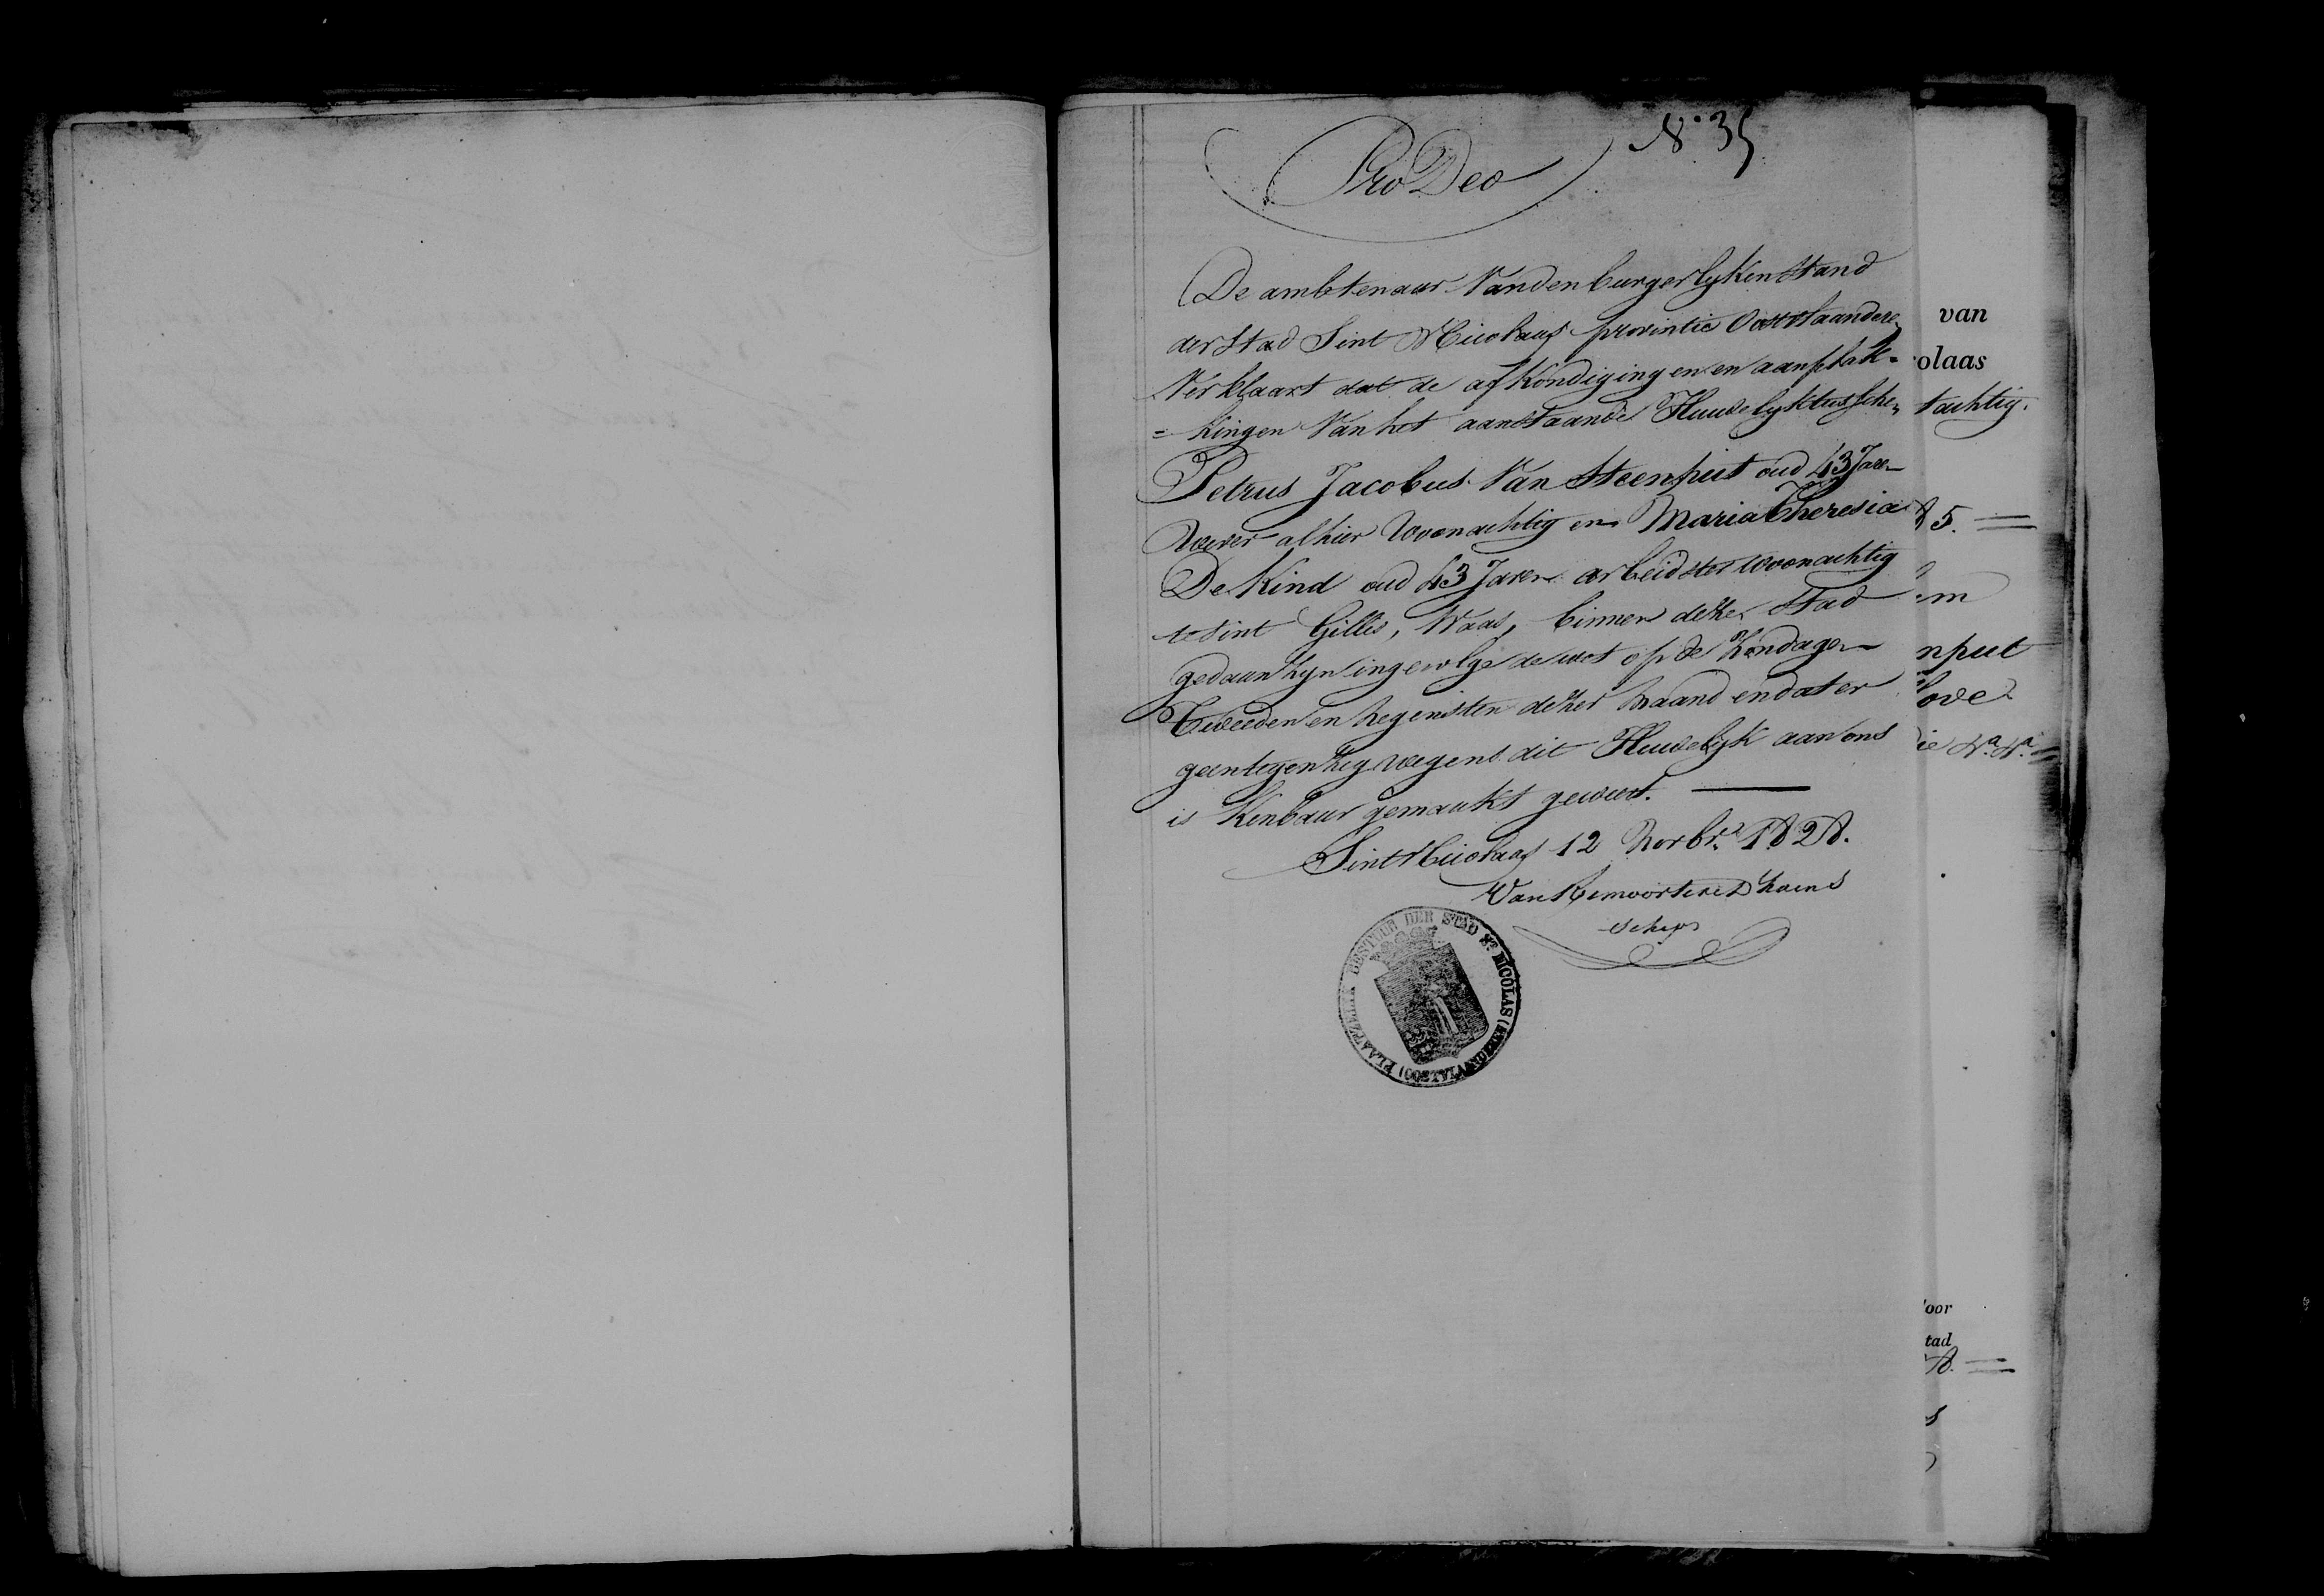 N° 35
Pro Deo
De ambtenaar Vanden burgerlyken Stand
der Stad Sint Nicolaas provintie Oostvlaandere,
Verklaart dat de afkondigingen en aanplak=
=kingen Van het aanstaande Huwelyk tussche,
Petrus Jacobus Van Steenput oud 43 Jare
wever alhier woonachtig en Maria Theresia
De Kind oud 43 Jaren arbeidster woonachtig
te Sint Gillis, Waas, binnen deze Stad
gedaan zyn ingevolge de wet op de Zondagen
Tweeden en Negensten dezer maand en dat er
geen tegenzeg wegens dit Huwelyk aan ons
is Kenbaar gemaakt geweest.
Sint Nicolaas 12 Novbr. 1828.
Schepn
PLAATZELYK BESTUUR DER STAD ST. NICOLAS (OOSTVLAANDEREN)
van
olaas
tachtig.
5.
m
nput
love
ie
oor
tad
8.